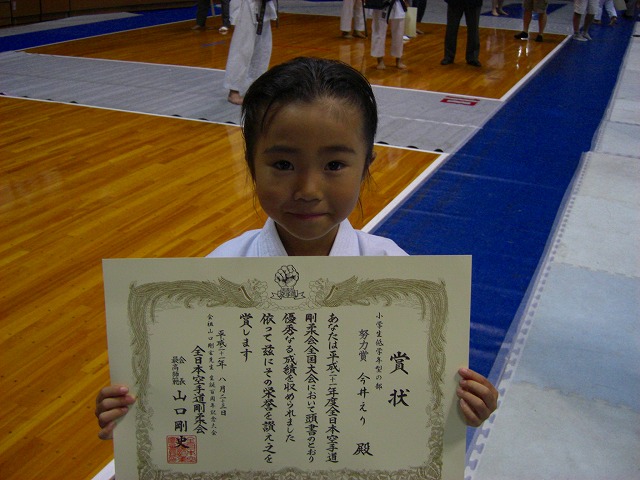 賞状
小学生低学年型の部
努力賞 今井えり 殿
あなたは平成二十一年度全日本空手道
剛柔会全国大会において頭書のとおり
優秀なる成績を収められました
依って茲にその栄誉を讃え之を
賞します
平成二十一年八月二十三日
会祖山口剛玄先生生誕百周年記念大会
全日本空手道剛柔会
会長
最高師範
山口剛史